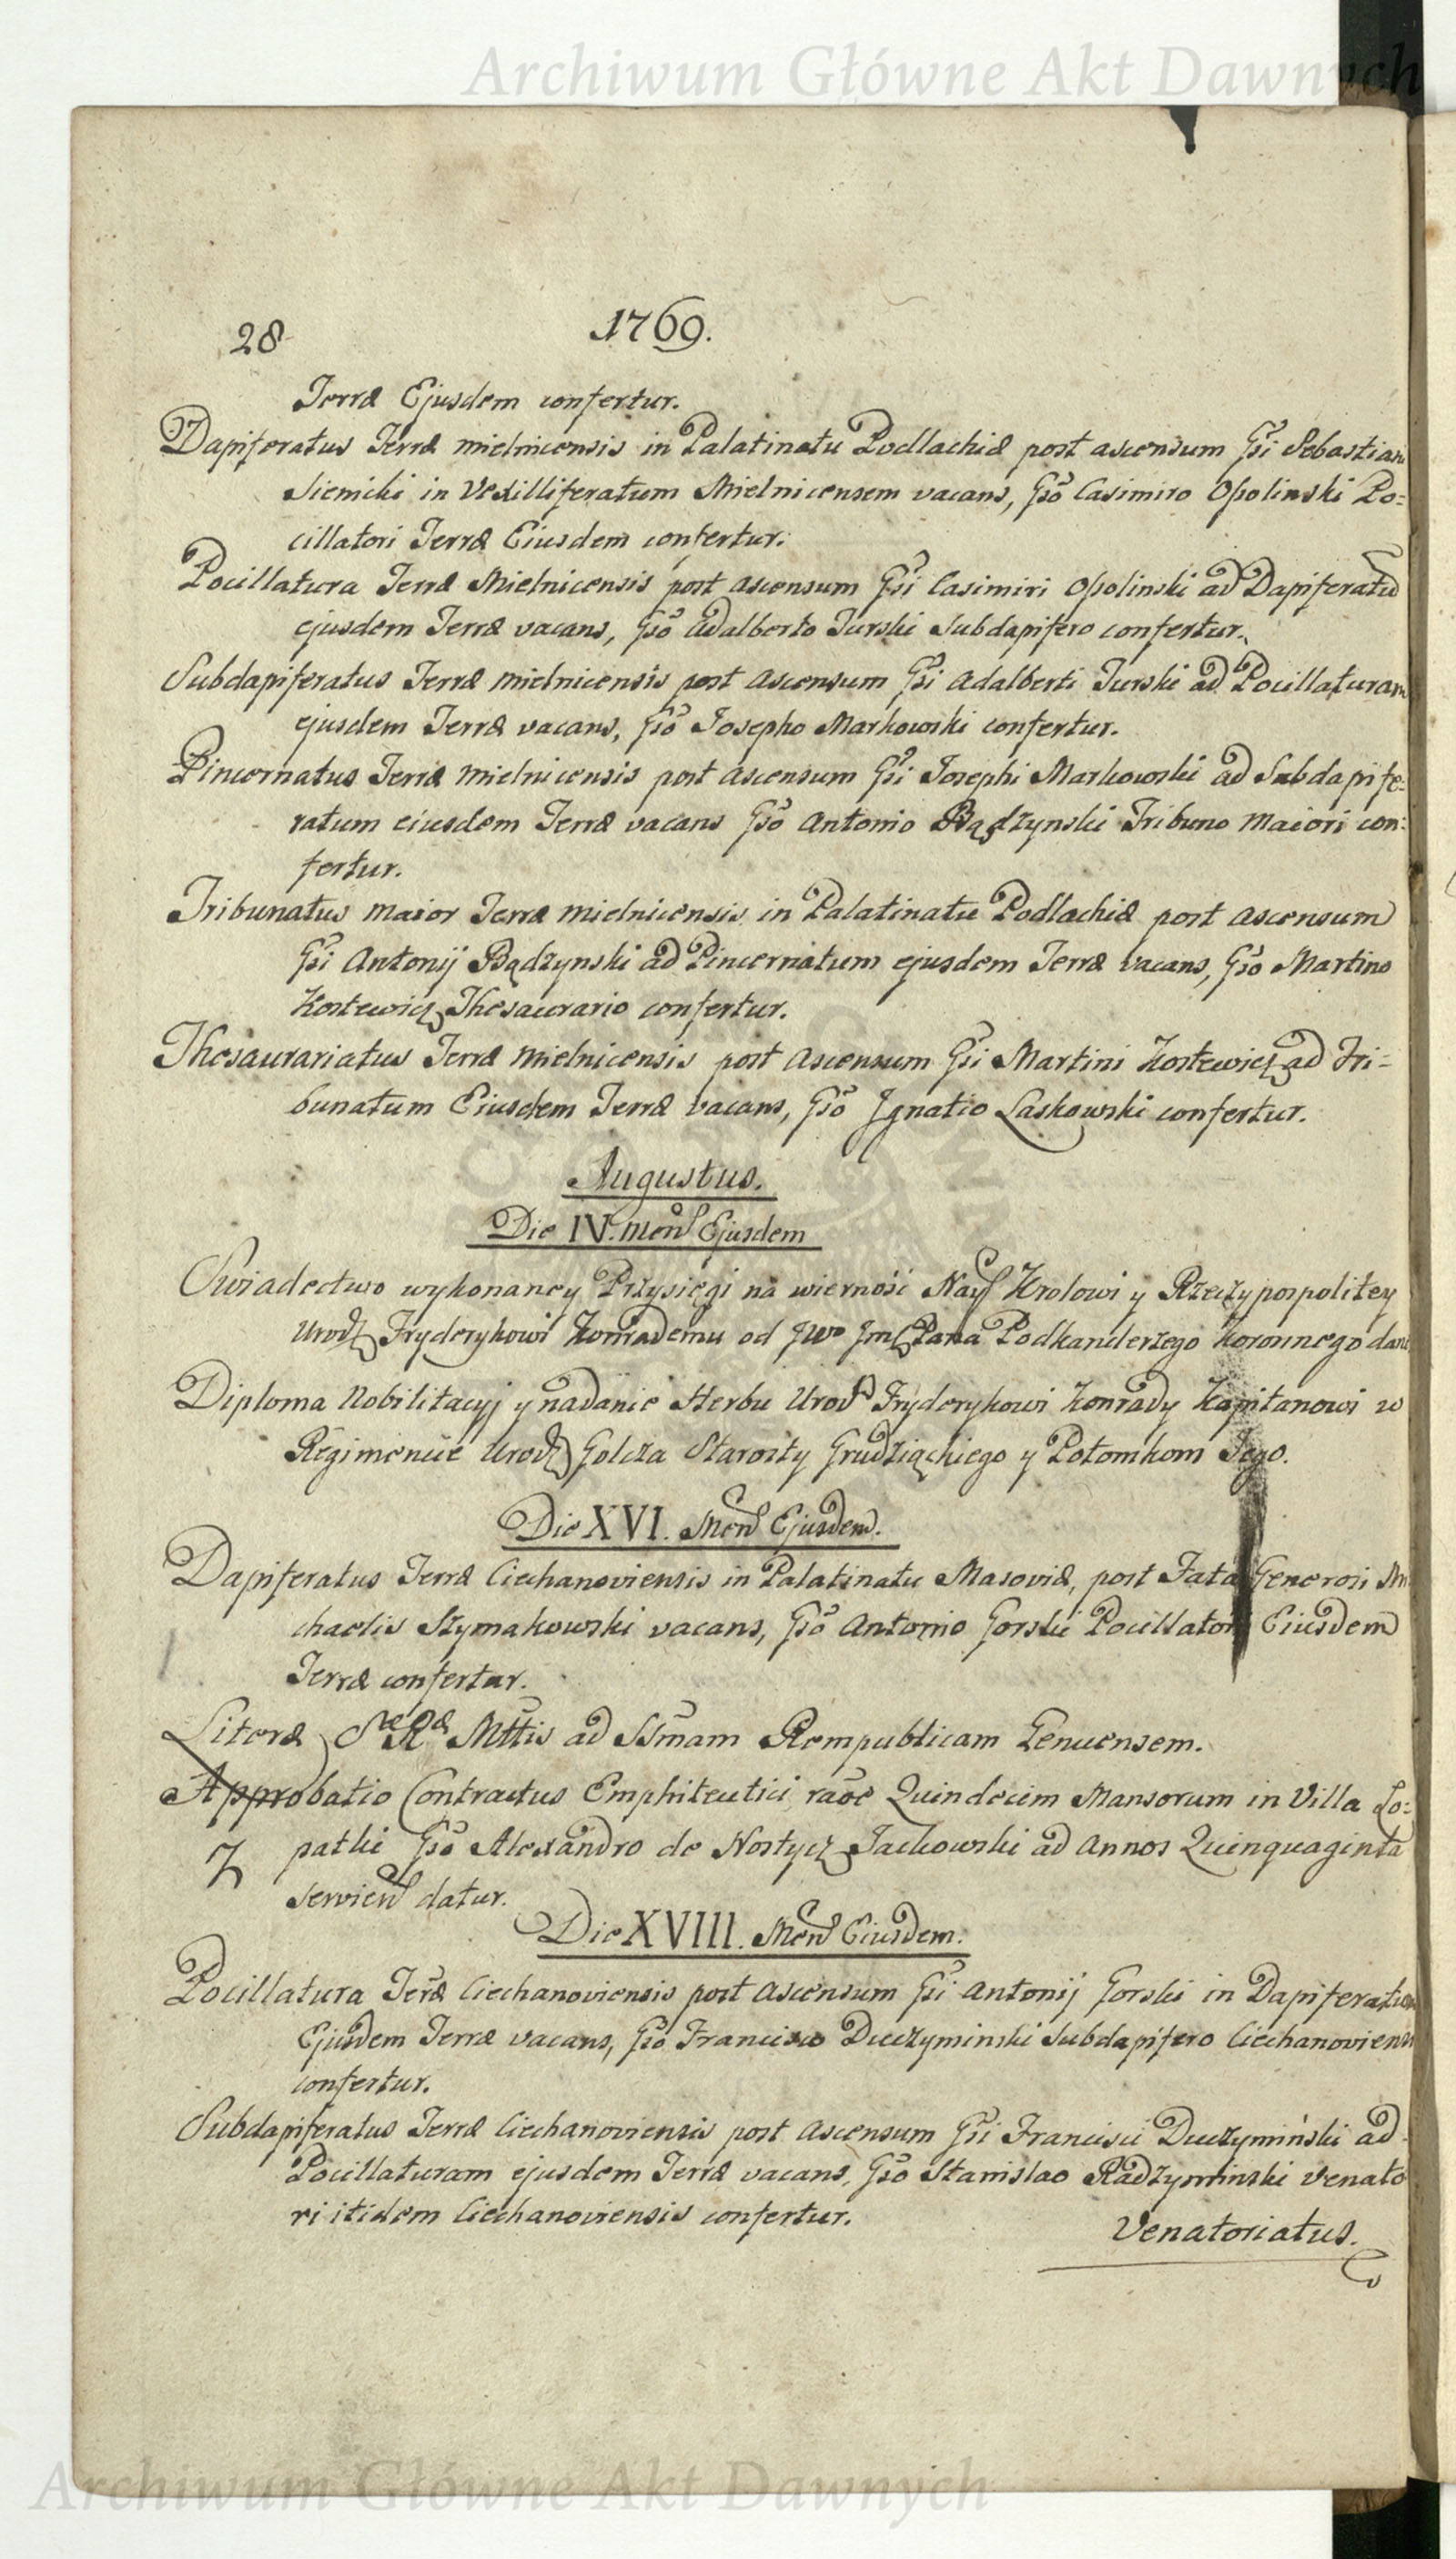 Archiwum Główne Akt Dawnych
28
1769.
Terræ Ejusdem confertur.
Dapiferatus Terræ mielnicensis in Palatinatu Podlachiæ post ascensum Gsi Sebastiani
Siemicki in Vexilliferatum Mielnicensem vacans, Gso Casimiro Opolinski Po=
cillatori Terræ Eiusdem confertur.
Pocillatura Terræ Mielnicensis post ascensum Gsi Casimiri Opolinski ad Dapiferatū
ejusdem Terræ vacans, Gso Adalberto Turski Subdapifero confertur.
Subdapiferatus Terræ mielnicensis post ascensum Gsi Adalberti Turski ad Pocillaturam
ejusdem Terræ vacans, Gso Josepho Markowski confertur.
Pincernatus Terræ mielnicensis post ascensum Gsi Josephi Markowski ad Subdapife=
ratum eiusdem Terræ vacans Gso Antonio Bądzynski Tribuno maiori con=
fertur.
Tribunatus maior Terræ mielnicensis in Palatinatu Podlachiæ post ascensum
Gsi Antonij Bądzynski ad Pincernatum ejusdem Terræ vacans, Gso Martino
Kostewicz Thesaurario confertur.
Thesaurariatus Terræ mielnicensis post ascensum Gsi Martini Kostewicz ad Tri=
bunatum Eiusdem Terræ vacans, Gso Ignatio Laskowski confertur.
Augustus.
Die IV. Men Ejusdem
Swiadectwo wykonaney Przysięgi na wierność Nay Krolowi y Rzeczypospolitey
Urodz Fryderykowi Konrademu od JWo Jmć Pana Podkanclerzego Koronnego dane
Diploma Nobilitacyj y nadanie Herbu Urod Fryderykowi Konrady Kapitanowi w
Regimencie Urodz Golcza Starosty Grudziąckiego y Potomkom Jego.
Die XVI. Men Ejusdem.
Dapiferatus Terræ Ciechanoviensis in Palatinatu Masoviæ, post Fata Generosi Mi
chaelis Szymakowski vacans, Gso Antonio Gorski Pocillatori Eiusdem
Terræ confertur.
Literæ Sæ Ræ Mttis ad SSmam Rempublicam Genuensem.
Approbatio Contractus Emphiteutici raōe Quindecim Mansorum in Villa Lo=
patki Gso Alexandro de Nostycz Jackowski ad Annos Quinquaginta
servien datur.
Die XVIII. Men Eiusdem.
Pocillatura Terræ Ciechanoviensis post ascensum Gsi Antonij Gorski in Dapiferatum
Ejusdem Terræ vacans, Gso Francisco Duczyminski Subdapifero Ciechanoviensi
confertur.
Subdapiferatus Terræ Ciechanoviensis post ascensum Gsi Francisci Duczymiński ad
Pocillaturam ejusdem Terræ vacans, Gso Stanislao Radzyminski Venato
ri itidem Ciechanoviensis confertur.
Venatoriatus.
Archiwum Główne Akt Dawnych